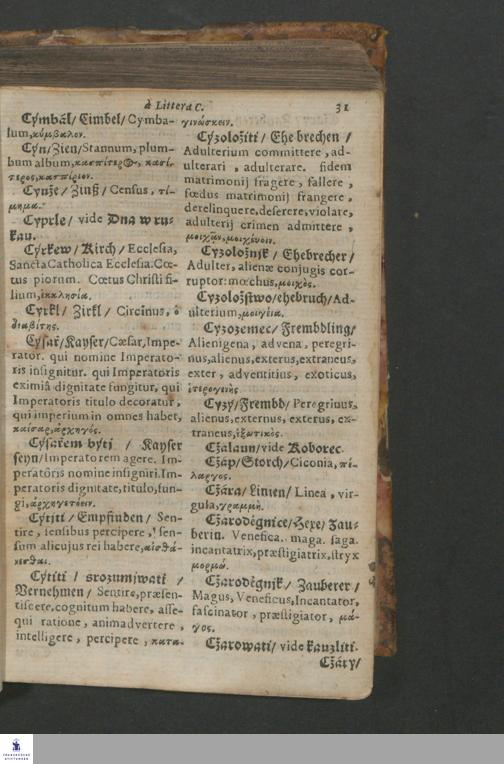 à Littera C. 31
Cýmbál/ Cimbel/ Cymba-
lum, κύμβαλον.
Cýn/ Zien/ Stannum, plum-
bum album,
Cynže/ Zinß/ Census, τί-
μημα.
Cyprle/ vide Dna w ru-
kau.
Cýrkew/ Kirch/ Ecclesia,
Sancta Catholica Ecclesia. Cœ-
tus piorum. Cœtus Christi fi-
lium, ἐκκλησία.
Cyrkl/ Zirkl/ Circinus, ὁ
διαβίτης.
Cýsař/ Kayser/ Cæsar, Impe-
rator. qui nomine Imperato-
ris insignitur. qui Imperatoris
eximiâ dignitate fungitur, qui
Imperatoris titulo decoratur,
qui imperium in omnes habet,
καίσαρ, ἀρχηγός.
Cýsařem býti / Kayser
seyn/ Imperatorem agere. Im-
peratoris nomine insigniri. Im-
peratoris dignitate, titulo, fun-
gi,
Cýtiti/ Empfinden/ Sen-
tire, sensibus percipere, sen-
sum alicujus rei habere, αἰσθά-
νεσθαι.
Cýtiti / srozumjwati /
Vernehmen/ Sentire, præsen-
tiscere, cognitum habere, asse-
qui ratione, animadvertere,
intelligere, percipere, κατα-
γινώσκειν.
Cýzoložiti/ Ehe brechen /
Adulterium committere, ad-
ulterari, adulterare. fidem
matrimonij fragere, fallere,
fœdus matrimonij frangere,
derelinquere, deserere, violare,
adulterij crimen admittere,
μοιχᾶν, μοιχέυειν.
Cyzoložnjk/ Ehebrecher/
Adulter, alienæ conjugis cor-
ruptor: mœchus, μοιχός.
Cyzoložstwo/ ehebruch/ Ad-
ulterium, μοιχεία.
Cyzozemec/ Frembbling/
Alienigena, advena, peregri-
nus, alienus, exterus, extraneus,
exter, adventitius, exoticus,
ἑτερογενής
Cyzý/ Frembd/ Peregrinus,
alienus, externus, exterus, ex-
traneus, ἐξωτικός.
Cžalaun/ vide Koborec.
Cžáp/ Storch/ Ciconia, πέ-
λαργος.
Cžára/ Linien/ Linea, vir-
gula, γραμμή.
Cžarodègnice/ Hexe/ Zau-
berin. Venefica. maga. saga.
incantatrix, præstigiatrix, stryx
μορμώ.
Cžarodègnjk/ Zauberer/
Magus, Veneficus, Incantator,
fascinator, præstigiator, μά-
γος.
Cžarowati/ vide kauzliti.
Cžáry/
FRANCKESCHE
STIFTUNGEN